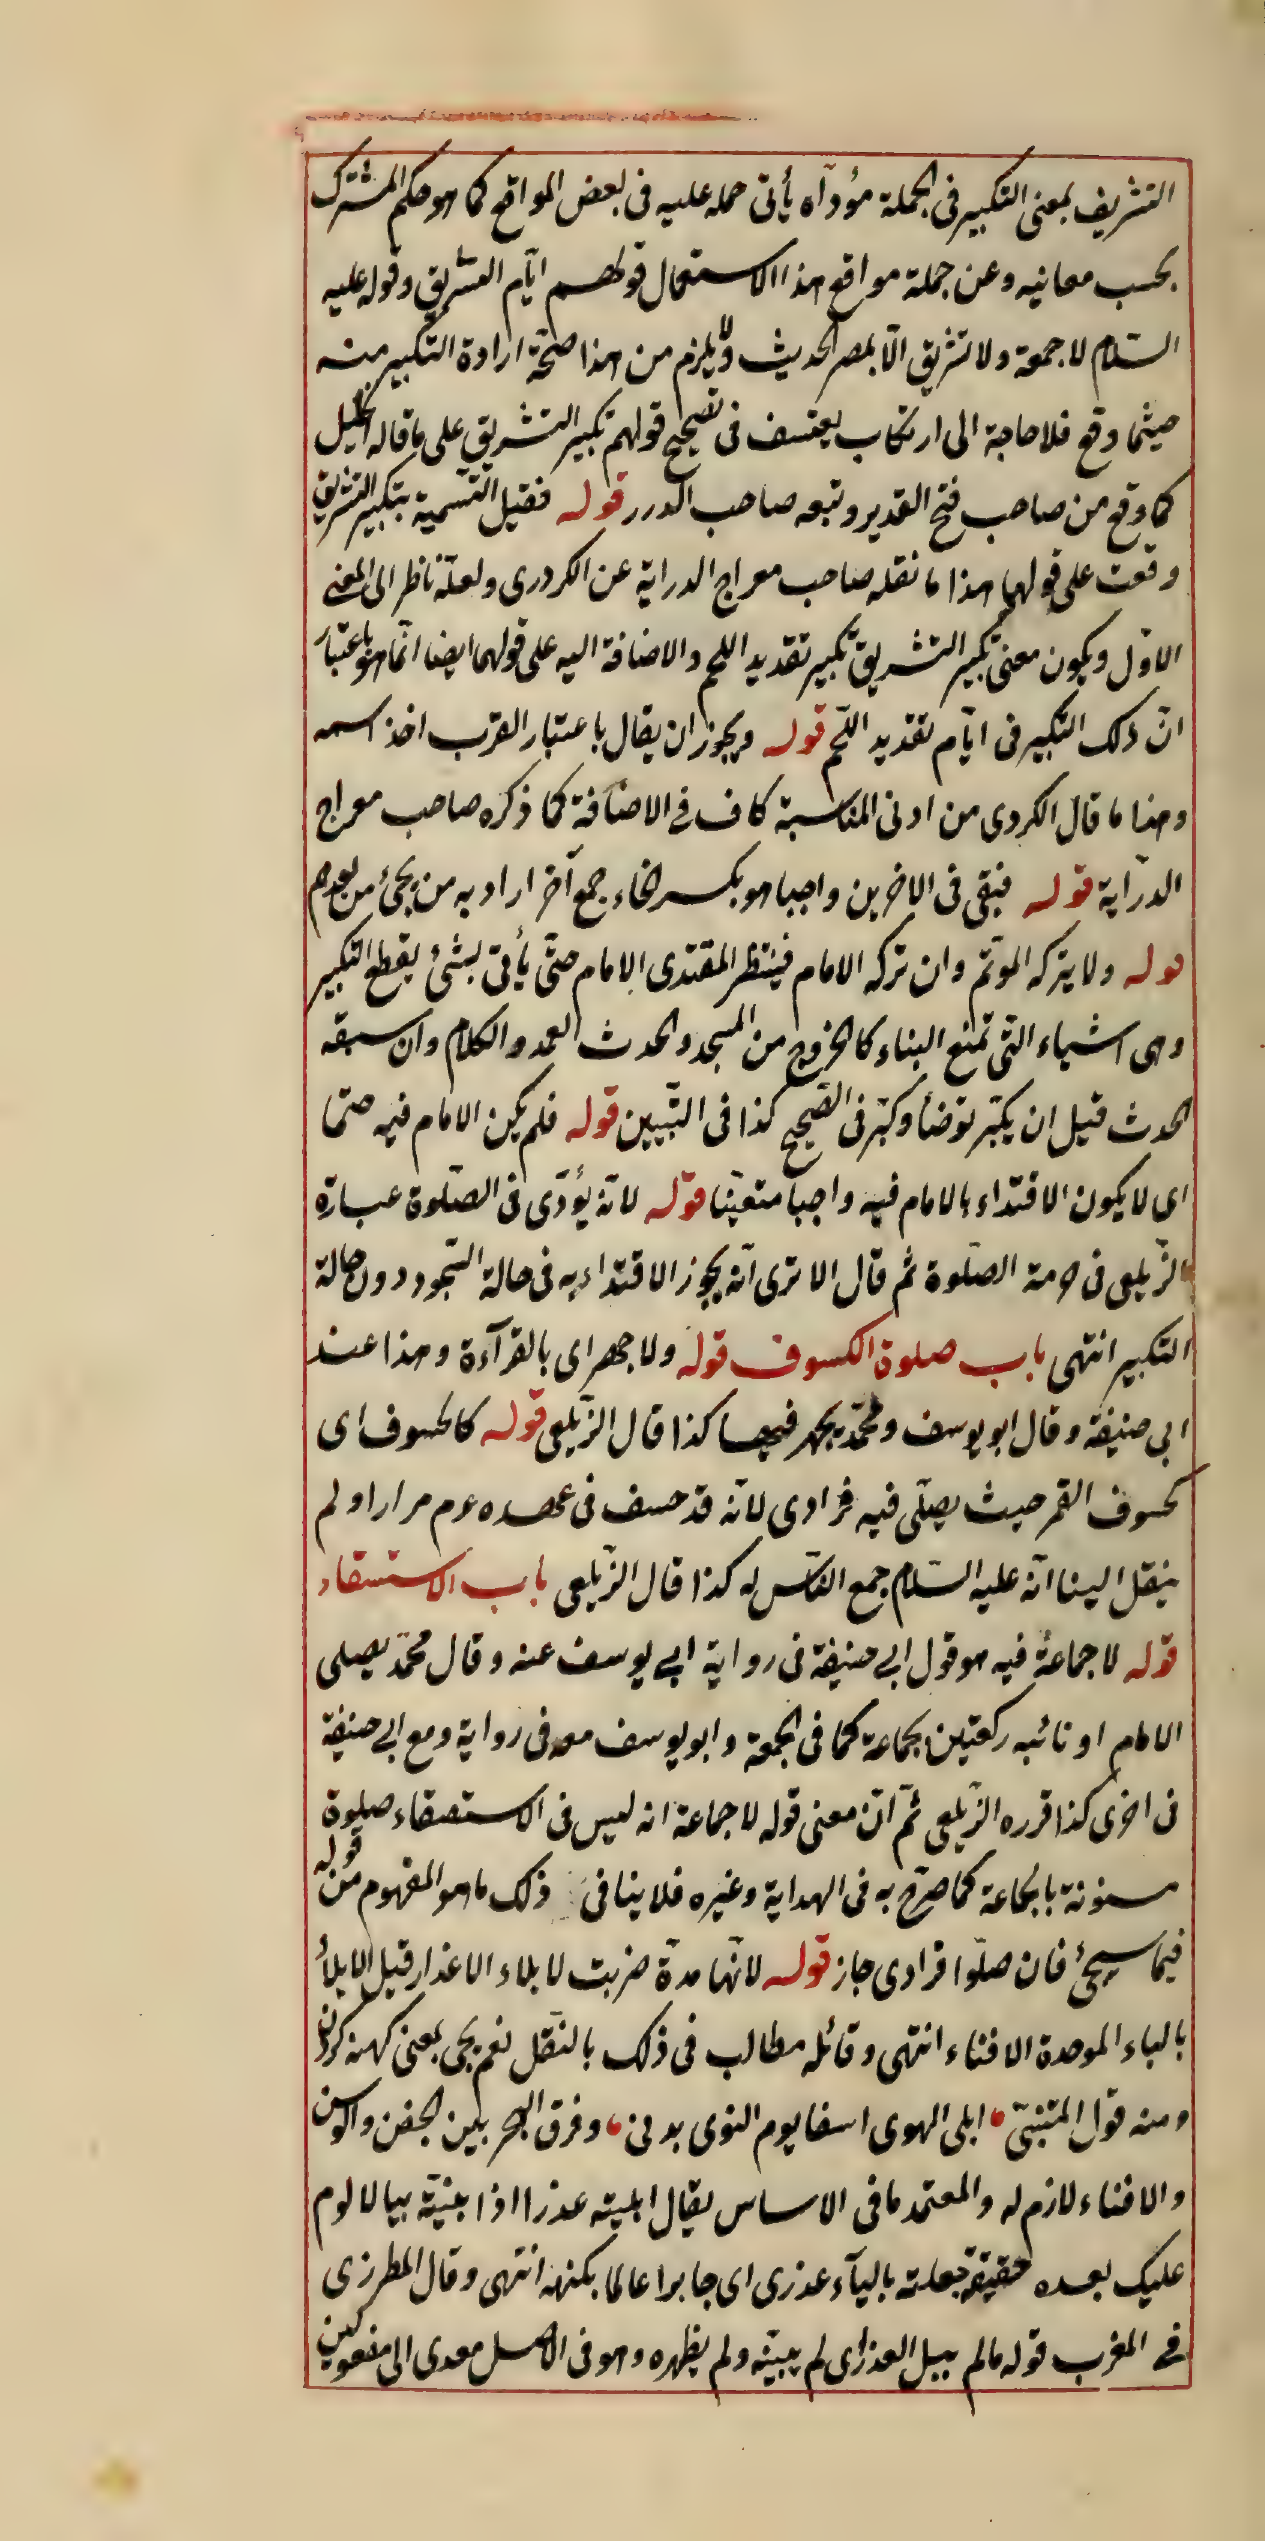 التشريف بمعنى التكبير فى الجملة مؤدآه يأتى حمله عليه فى بعض المواقع كما هو حكم المشترك
بحسب معانيه وعن جملة مواقع هذا الاستعمال قولهم ايّام التشريق وقوله عليه
السّلام لا جمعة ولا تشريق الّا بمصر الحديث ولا يلزم من هذا صحّة ارادة التكبير منه
حيثما وقع فلا حاجة الى ارتكاب يعتسف فى تصحيح قولهم تكبير التشريق على ما قاله الخليل
كما وقع من صاحب فتح القدير وتبعه صاحب الدرر قوله فقيل التسمية بتكبير التشريق
وقعت على قولهما هذا ما نقله صاحب معراج الدراية عن الكردرى ولعلّه ناظر الى المعنى
الاوّل ويكون معنى تكبير التشريق تكبير تقديد اللحم والاضافة اليه على قولهما ايضا انّما هو باعتبار
انّ ذلك التكبير فى ايّام تقديد اللّحم قوله ويجوز ان يقال باعتبار القرب اخذ اسمه
وهذا ما قال الكردى من ادنى المناسبة كاف فى الاضافة كما ذكره صاحب معراج
الدرّاية قوله فبقى فى الاخرين واجبا هو بكسر الخاء جمع آخر اراد به من يجئ من بعدهم
قوله ولا يتركه المؤتمّ وان تركه الامام فينتظر المقتدى الامام حتّى يأتى بشئ يقطع التكبير
وهى اشياء التّى تمنع البناء كالخروج من المسجد والحدث العمد والكلام وان سبقه
الحدث قبل ان يكبّر توضأ وكبّر فى الصّحيح كذا فى التّبيين قوله فلم يكن الامام فيه حتما
اى لا يكون الاقتداء بالامام فيه واجبا متعيّنا قوله لانّه يؤدّى فى الصّلوة عبارة
الزّيلعى فى حرمة الصّلوة ثم قال الا ترى انّه يجوز الاقتداء به فى حالة السّجود دون حالة
التكبير انتهى باب صلوة الكسوف قوله ولا جهر اى بالقرآءة وهذا عند
ابى حنيفة وقال ابو يوسف ومحمّد يجهر فيهما كذا قال الزّيلعى قوله كالخسوف اى
كخسوف القمر حيث يصلّى فيه فرادى لانّه قد خسف فى عهده عم مرارا ولم
ينقل الينا انّه عليه السّلام جمع النّاس له كذا قال الزّيلعى باب الاستسقاء
قوله لا جماعة فيه هو قول ابى حنيفة فى رواية ابى يوسف عنه وقال محمّد يصلى
الامام او نائبه ركعتين بجماعة كما فى الجمعة وابو يوسف معه فى رواية ومع ابى حنيفة
فى اخرى كذا قرره الزّيلعى ثمّ انّ معنى قوله لا جماعة انه ليس فى الاستصقاء صلوة
مسنونة بالجماعة كما صرّح به فى الهداية وغيره فلا ينافى ذلك ما هو المفهوم من قوله
فيما سيجئ فان صلّوا فرادى جاز قوله لانّها مدّة ضربت لابلاء الاعذار قيل الابلأ
بالباء الموحدة الافناء انتهى وقائله مطالب فى ذلك بالنّقل نعم يجى بمعنى كهنه كردن
ومنه قول المتنبّى ابلى الهوى اسفا يوم النوى بدنى وفرق الهجر بين الجفن والوسن
والافناء لازم له والمعتمد ما فى الاساس يقال ابليته عذرا اذا بيّنته بيانا لا لوم
عليك بعده حقيقة جعلته باليآء عذرى اى جابرا عالما بكنهه انتهى وقال المطرزى
فى المغرب قوله ما لم يبل العذر اى لم يبيّنه ولم يظهره وهو فى الاصل معدى الى مفعولين